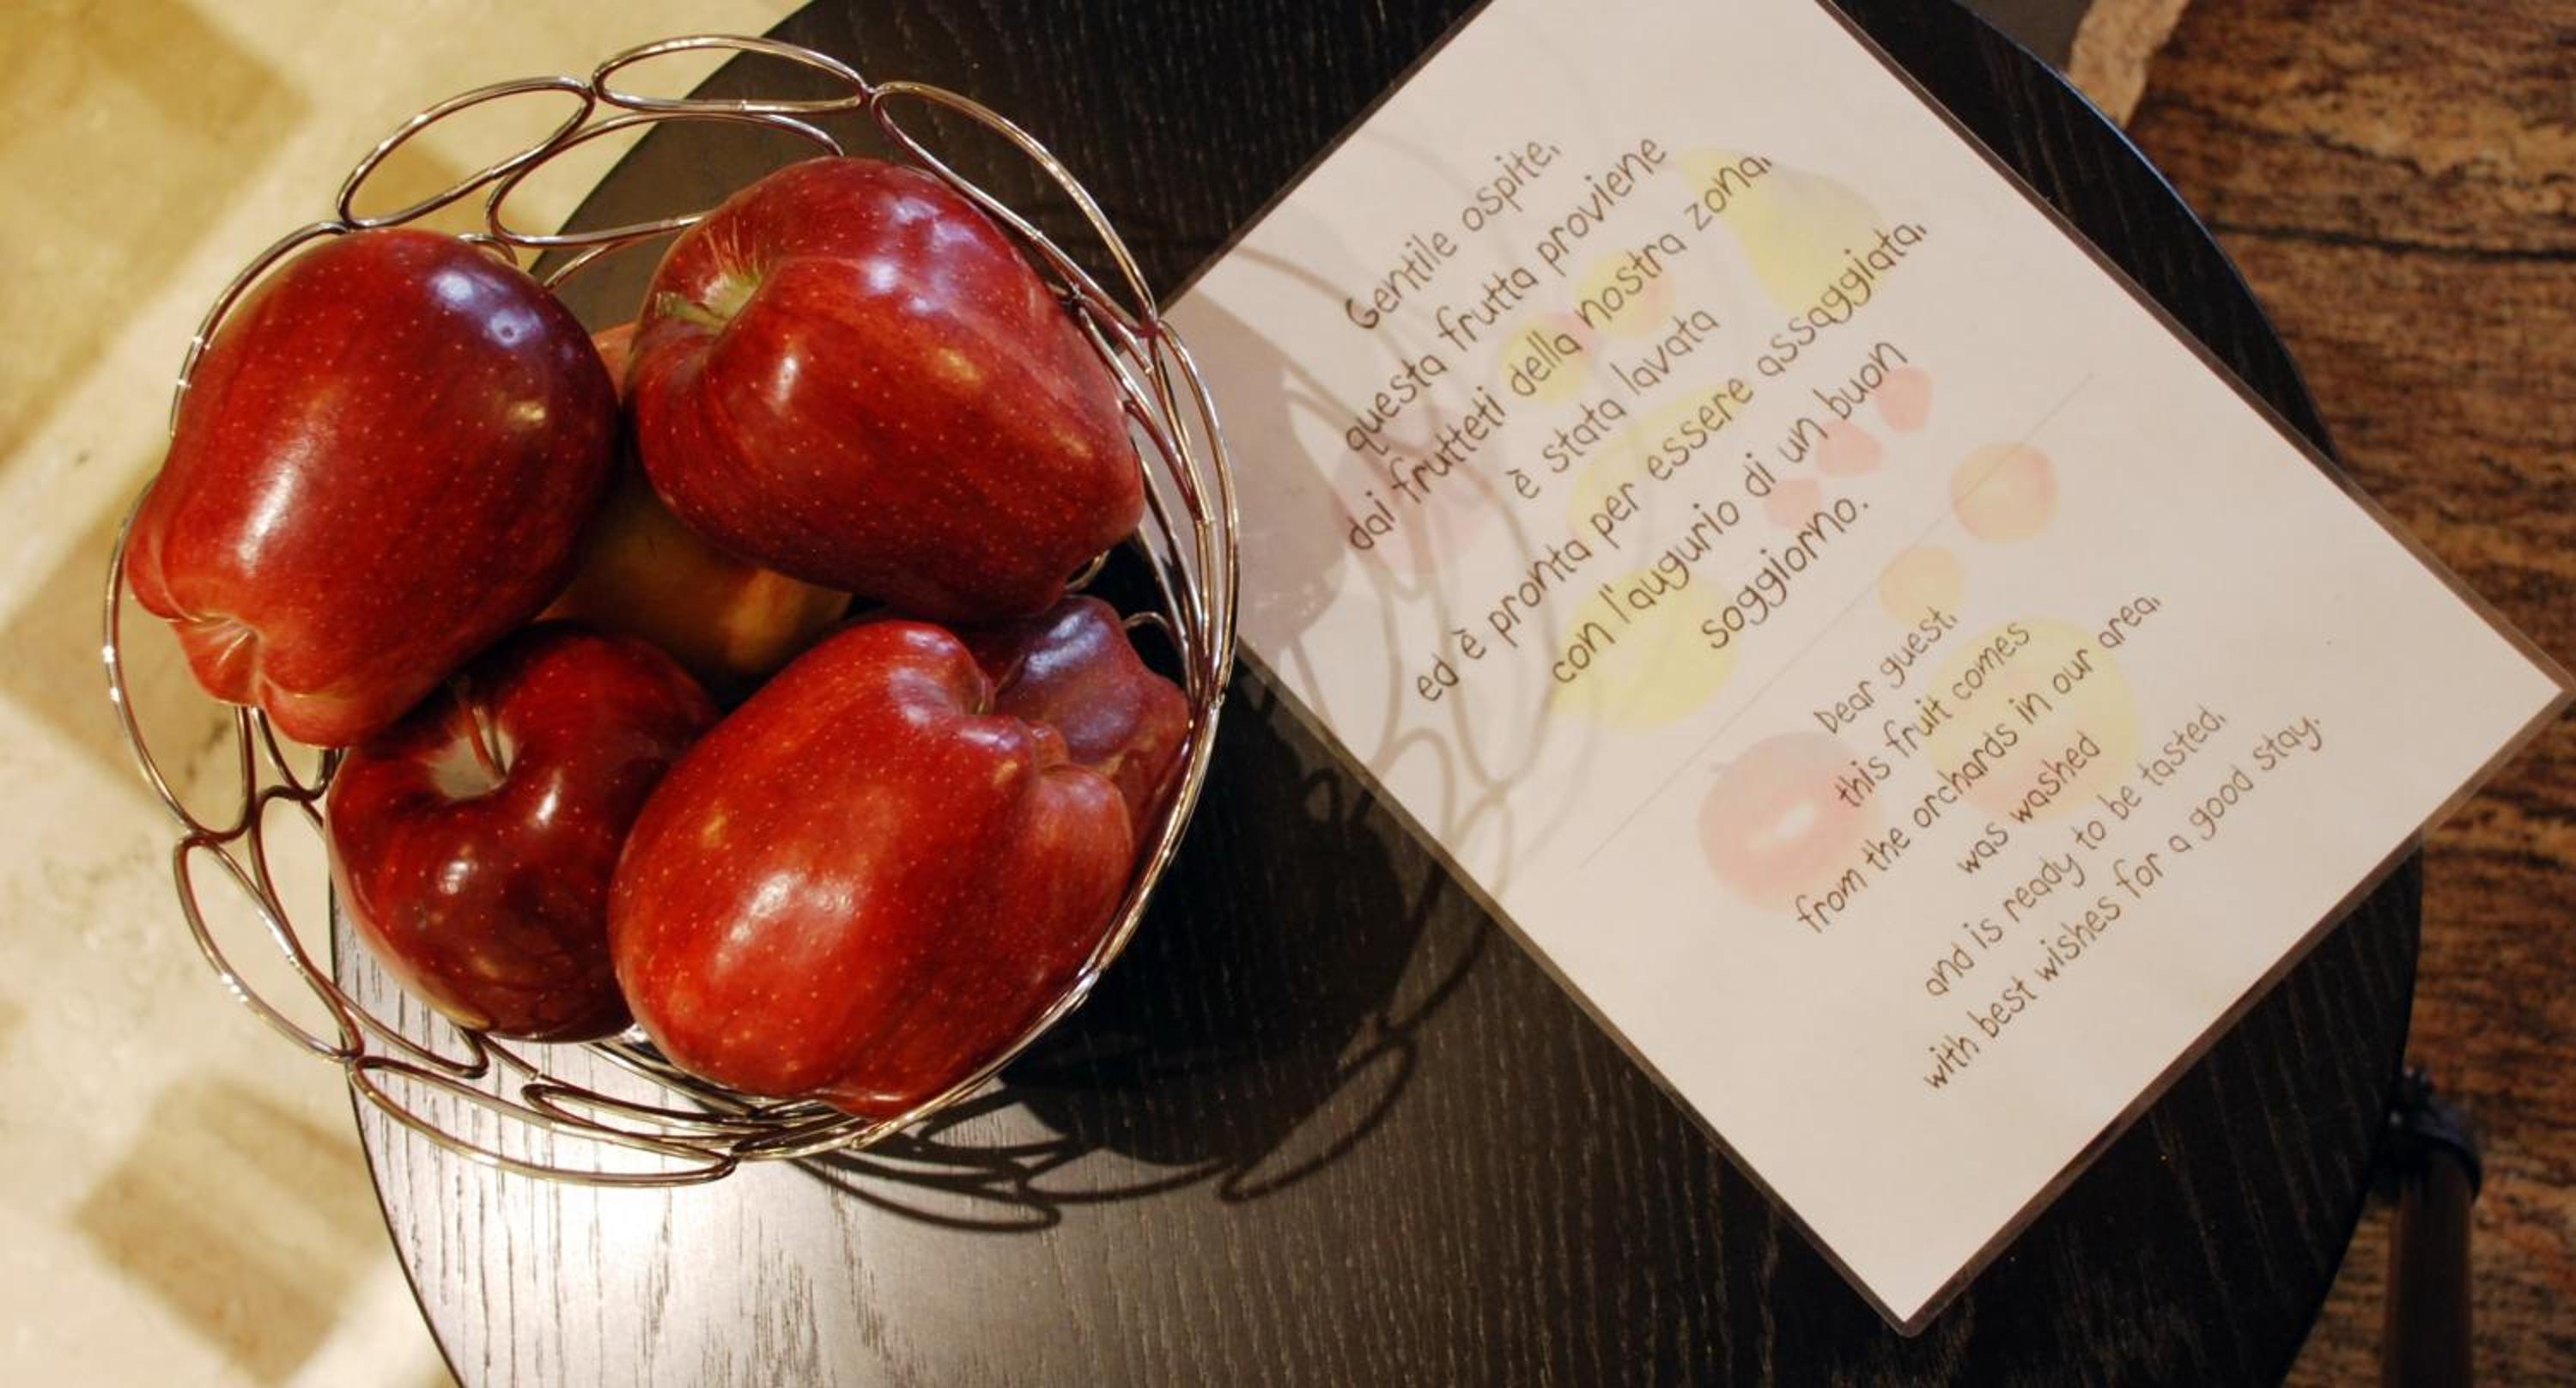 Gentile ospite,
questa frutta proviene
dai frutteti della nostra zona,
è stata lavata
ed è pronta per essere assaggiata,
con l'augurio di un buon
soggiorno.
Dear guest,
this fruit comes
from the orchards in our area,
was washed
and is ready to be tasted,
with best wishes for a good stay.